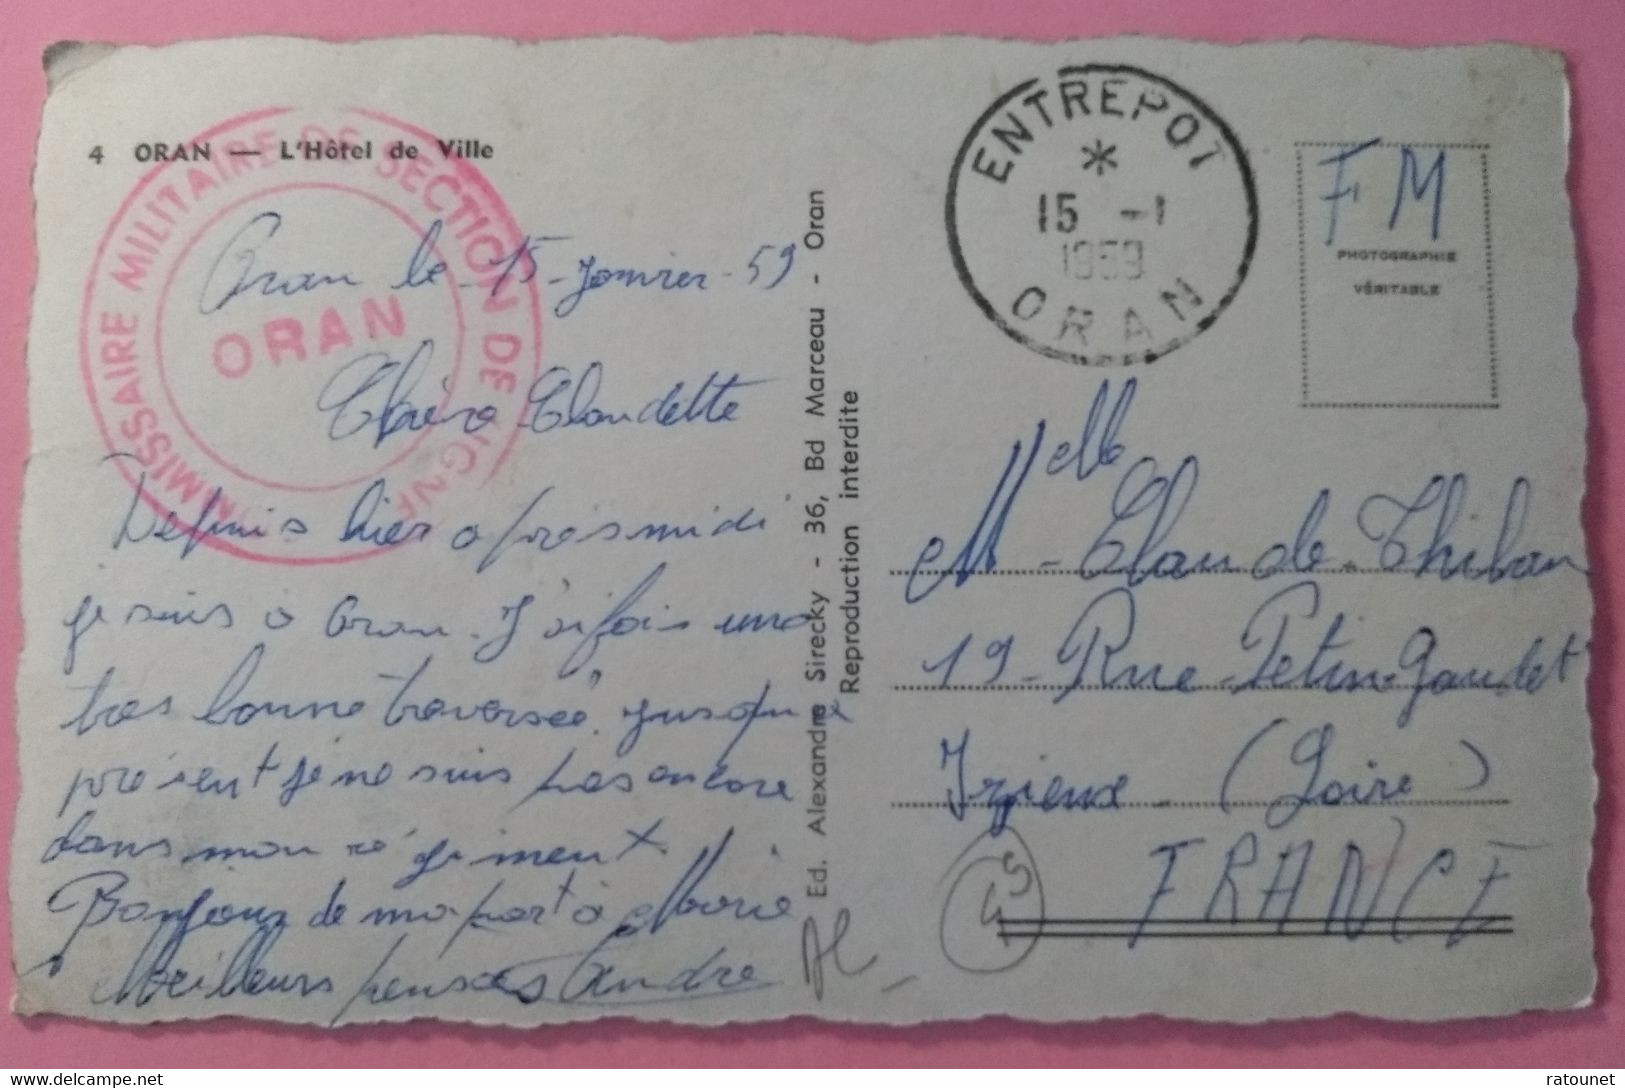 4 ORAN — L'Hôtel de Ville
COMMISSAIRE MILITAIRE DE SECTION DE LIGNE
ORAN
Oran le 15-Janvier-59
Chère Claudette
Depuis hier après midi
je suis à Oran. J'ai fais une
très bonne traversée, jusqu'à
présent je ne suis pas encore
dans mon régiment.
Bonjour de ma part à Marie
Meilleurs pensées André
Ed. Alexandre Sirecky - 36, Bd Marceau - Oran
Reproduction interdite
ENTREPOT
*
15 -1
1959
ORAN
FM
PHOTOGRAPHIE
VÉRITABLE
Melle
M - Claude Thiban
19 - Rue Petin Gaudet
(Loire)
FRANCE
delcampe.net
ratounet